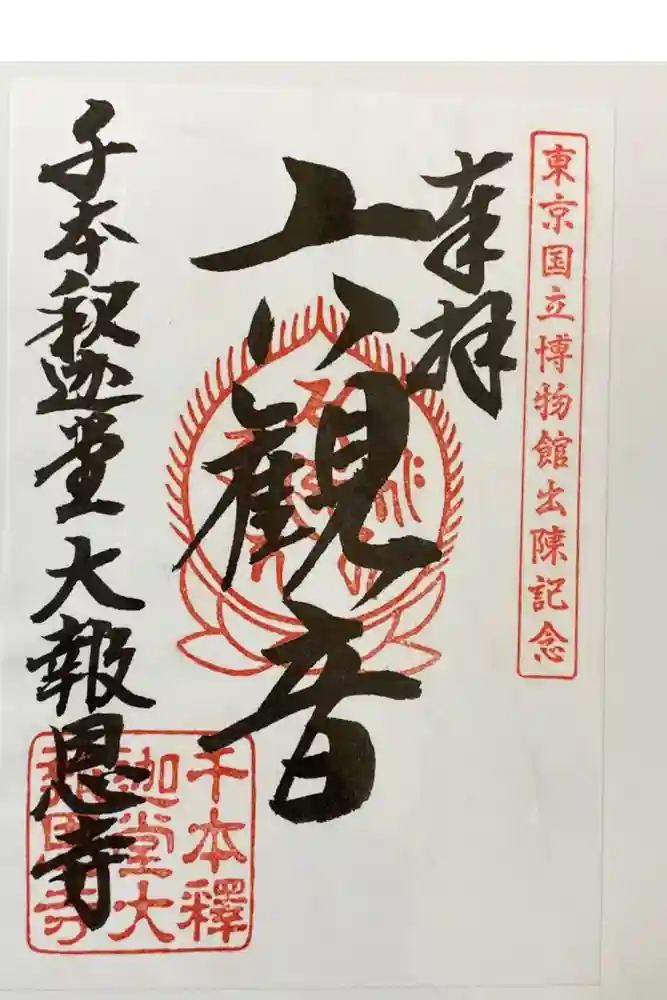 東京国立博物館出陳記念
奉拝
六観音
千本釈迦堂大報恩寺
千本釋
迦堂大
報恩寺